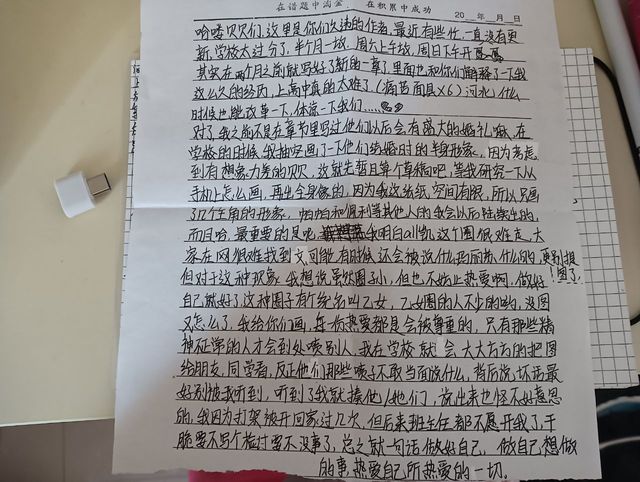 在错题中淘金 在积累中成功
20 年 月 日
哈喽贝贝们,这里是你们久违的作者,最近有些忙,一直没有更
新,学校太过分了,半个月一放,周六上午放,周日下午开
其实在两个月之前就写好了新的一章了里面也和你们解释了一下我
这么久的经历,上高中真的太难了(痛苦面具×6)河北,什么
时候也能改革一下,体谅一下我们……
对了,我之前不是在章节里写过他们以后会有盛大的婚礼嘛,在
学校的时候,我抽空画了一下他们结婚时的半身形象,因为考虑
到有想象力差的贝贝,这就先暂且算个草稿吧,等我研究一下从
手机上怎么画,再出全身像的,因为我这张纸空间有限,所以只画
了几个主角的形象,帕帕和佩利等其他人的我会以后陆续出的,
而且哈,最重要的是呢,我明白凹凸这个圈很难走,大
家在网很难找到文,可能有时候还会被说什么玛丽苏什么的,更别提
图了!
但对于这种现象我想说虽然圈子小,但也不妨止热爱啊,做好
自己就好了,这种圈子有个统名叫乙女,乙女圈的人不少的哟,没图
又怎么了,我给你们画,每份热爱都是会被尊重的,只有那些精
神征常的人才会到处喷别人,我在学校就会大大方方的把图
给朋友,同学看,反正他们那些喷子不敢当面说什么,背后说坏话最
好别被我听到,听到了我就揍他/她们,说出来也怪不好意思
的,我因为打架被开回家过几次,但后来班主任都不愿开我了,干
脆要不写个检讨要不没事了,总之就一句话做好自己,做自己想做
的事,热爱自己所热爱的一切。